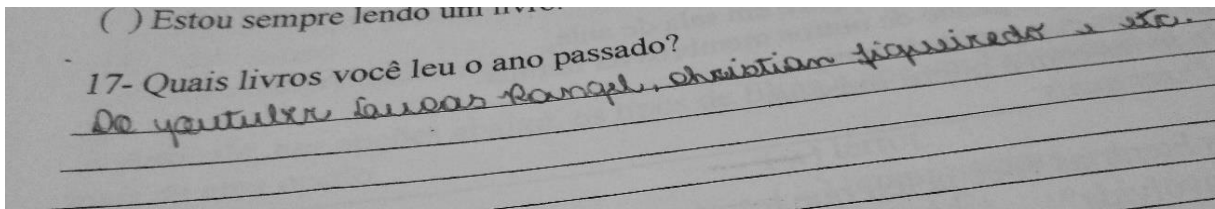 ( ) Estou sempre lendo um livro.
17- Quais livros você leu o ano passado?
Do youtuber Lucas Rangel, christian figueiredo e etc.